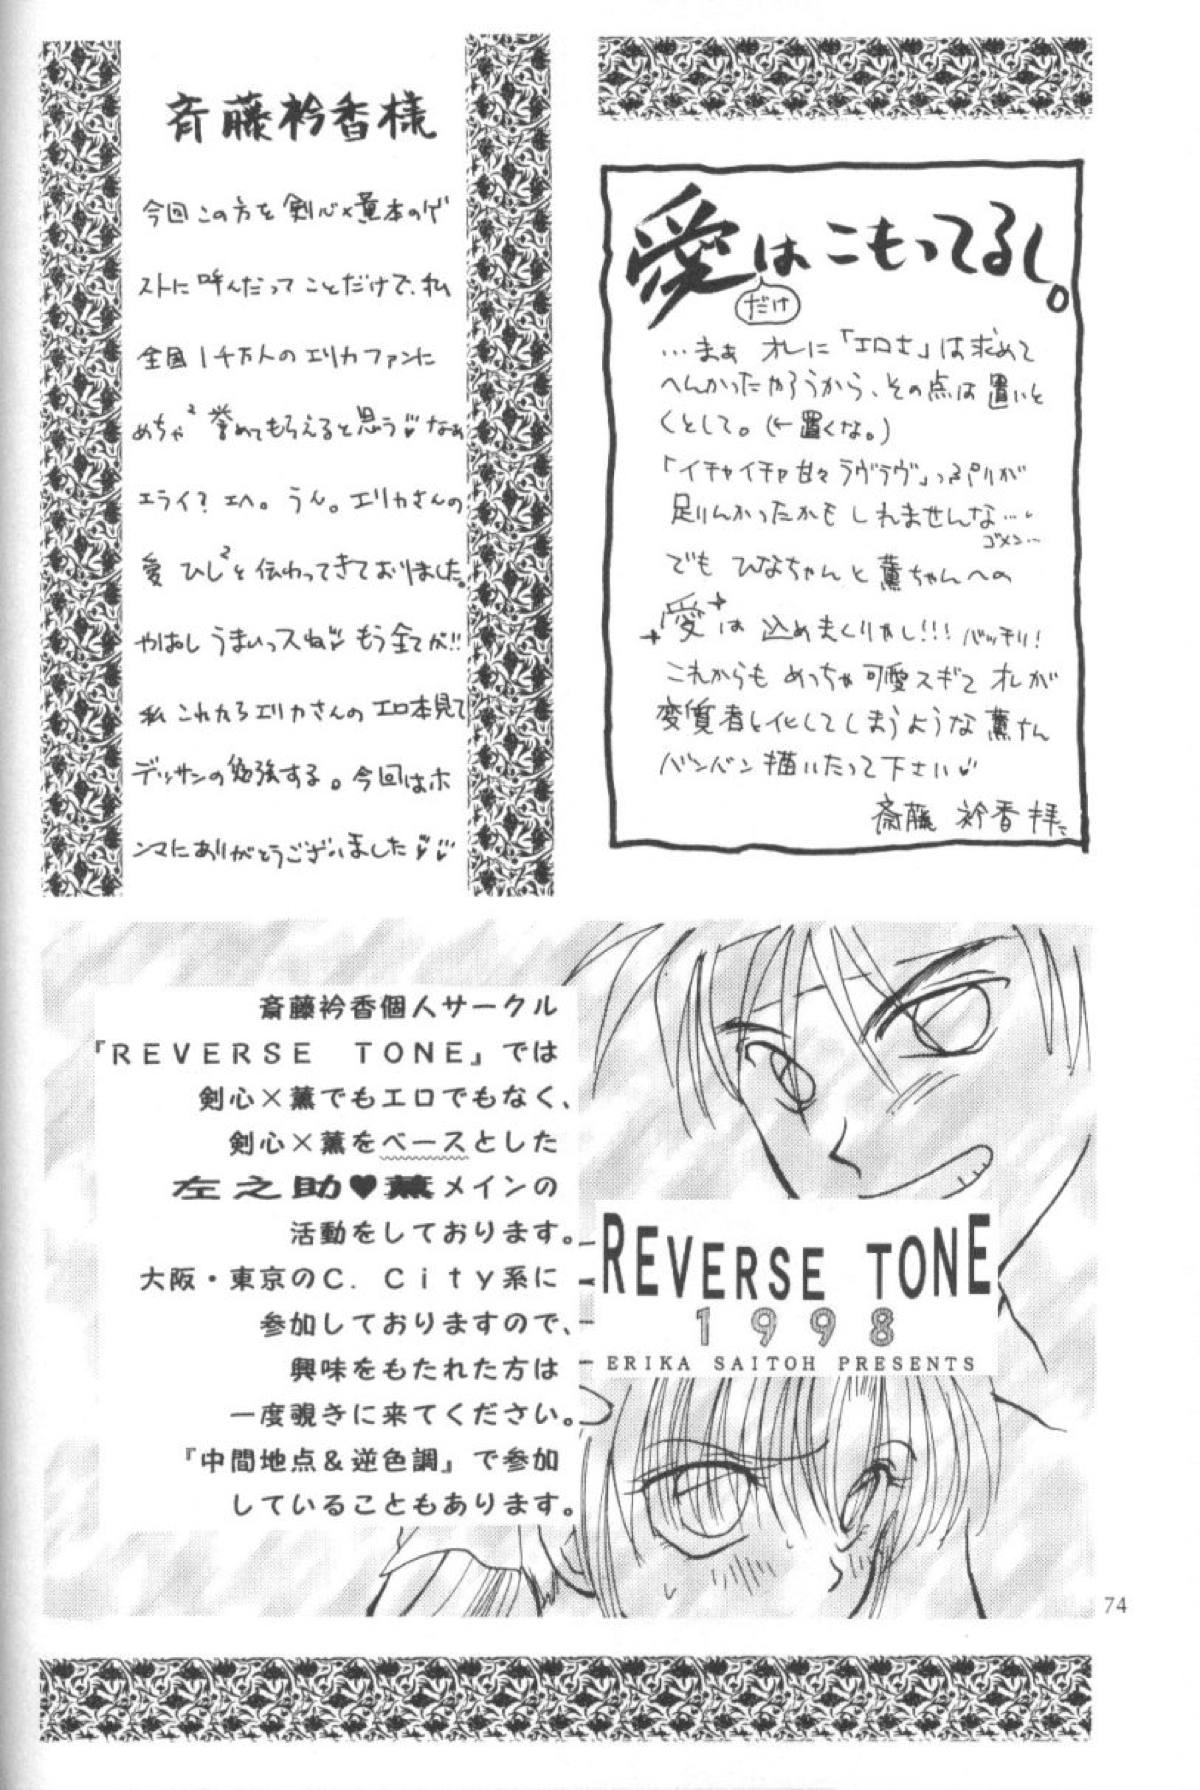 斉藤衿香様
今回この方を剣心×薫本のゲ
ストに呼んだってことだけで、私
全国1千万人のエリカファンに
めちゃ² 誉めてもらえると思う♡なぁ
エライ?エヘ。うん。エリカさんの
愛 ひし²と伝わってきておりました。
やはし うまいっスね♡もう全てが!!
私 これからエリカさんのエロ本見て
デッサンの勉強する。今回はホ
ンマにありがとうございました♡♡
愛はこもってるし。
だけ
…まぁ オレに「エロさ」は求めて
へんかったやろうから、その点は置いと
くとして。(←置くな。)
「イチャイチャ甘々ラヴラヴ」っぷりが
足りんかったかもしれませんな…
ゴメン…
でも ひなちゃんと薫ちゃんへの
愛は 込めまくりやし!!! バッチリ!
これからも めっちゃ可愛スギて オレが
変質者と化してしまうような薫さん
バンバン描いたって下さい♡
斎藤 衿香 拝
斎藤衿香個人サークル
『REVERSE TONE』では
剣心×薫でもエロでもなく、
剣心×薫をベースとした
左之助♥薫メインの
活動をしております。
大阪・東京のC. City系に
参加しておりますので、
興味をもたれた方は
一度覗きに来てください。
『中間地点&逆色調』で参加
していることもあります。
REVERSE TONE
1998
ERIKA SAITOH PRESENTS
74